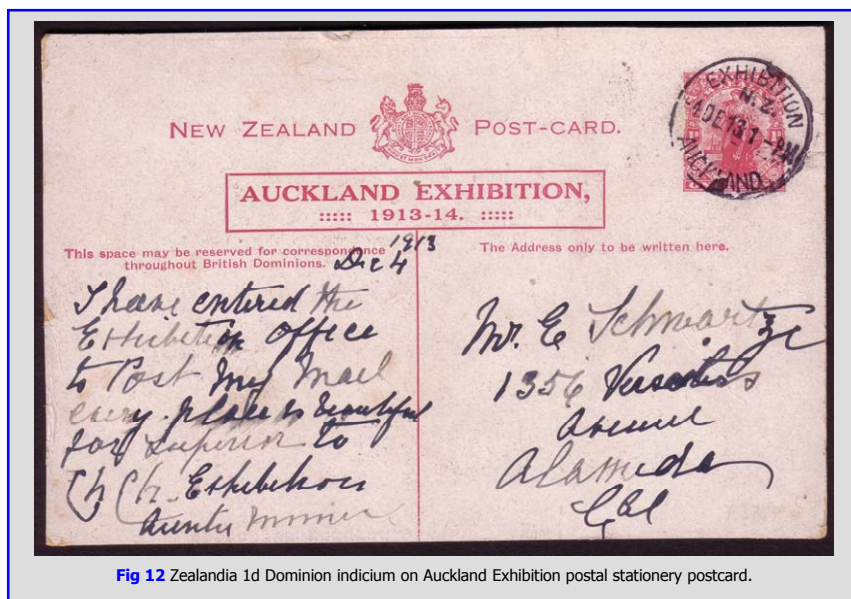 NEW ZEALAND POST-CARD.
EXHIBITION
N.Z.
4 DE 13 1 - PM
AUCKLAND
AUCKLAND EXHIBITION,
::::: 1913-14. :::::
This space may be reserved for correspondence
throughout British Dominions.
The Address only to be written here.
1913
Dec 4
I have entered the
Exhibition office
to Post My Mail
every place is beautiful
far superior to
Ch Ch. Exhibition
Auntie
Mr. E Schwartze
1356 Versailles
Avenue
Alameda
Cal
Fig 12 Zealandia 1d Dominion indicium on Auckland Exhibition postal stationery postcard.